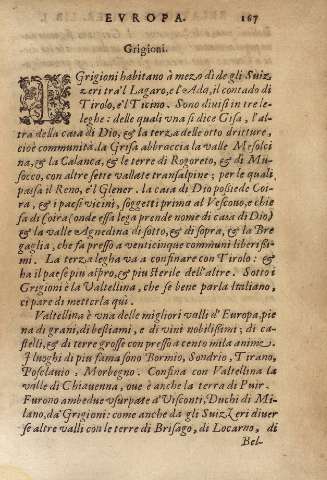 EVROPA. 167
Grigioni.
I Grigioni habitano à mezo dì de gli Suiz
zeri tra'l Lagaro, e l'Ada, il contado di
Tirolo, e'l Ticino. Sono diuisi in tre le-
leghe: delle quali vna si dice Grisa, l'al
tra della casa di Dio, & la terza delle otto dritture,
cioè communità. la Grisa abbraccia la valle Mesolci
na, & la Calanca, & le terre di Rogoreto, & di Mu-
socco, con altre sette vallate transalpine; per le quali
passa il Reno, e'l Glener. la casa di Dio possede Coi-
ra, & i paesi vicini, soggetti prima al Vescouo, e chie
sa di coira (onde essa lega prende nome di casa di Dio)
& la valle Agnedina di sotto, & di sopra, & la Bre
gaglia, che fa presso a venticinque communi liberissi
mi. La terza legha va a confinare con Tirolo: &
ha il paese piu aspro, & piu sterile dell'altre. Sotto i
Grigioni è la Valtellina, che se bene parla Italiano,
ci pare di metterla qui.
Valtellina è vna delle migliori valli d'Europa, pie
na di grani, di bestiami, e di vini nobilissimi; di ca-
stelli, & di terre grosse con presso a cento mila anime.
I luoghi di piu fama sono Bormio, Sondrio, Tirano,
Posclauio, Morbegno. Confina con Valtellina la
valle di Chiauenna, oue è anche la terra di Puir.
Furono ambedue vsurpate a' Visconti, Duchi di Mi-
lano, da' Grigioni: come anche da gli SuizZeri diuer
se altre valli con le terre di Brisago, di Locarno, di
Bel-